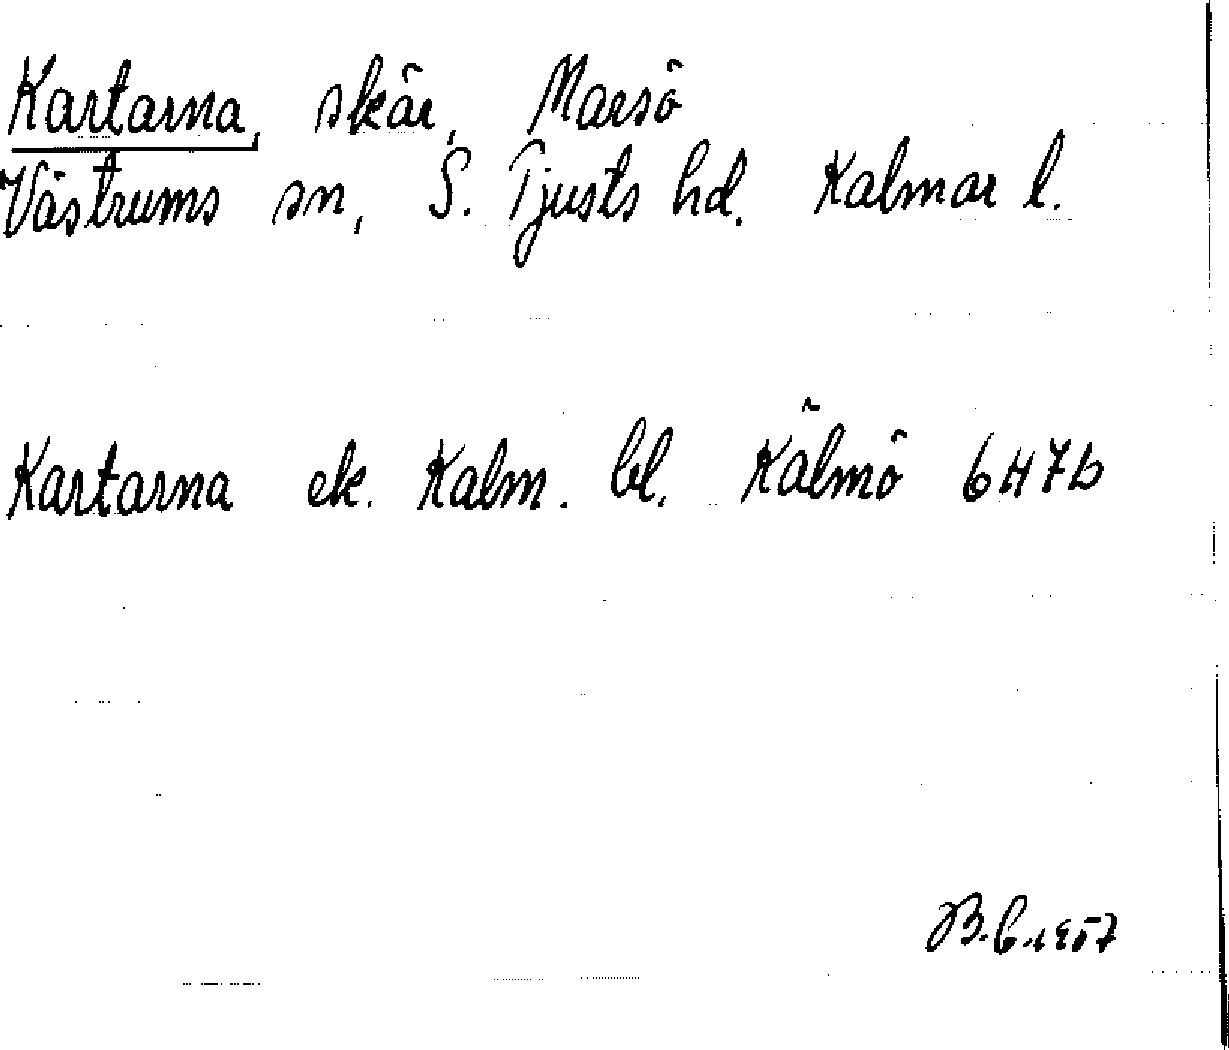 Kartarna, skär, Marsö
Västrums sn, S. Tjusts hd. Kalmar l.
Kartarna ek. Kalm. bl. Kälmö 6H7b